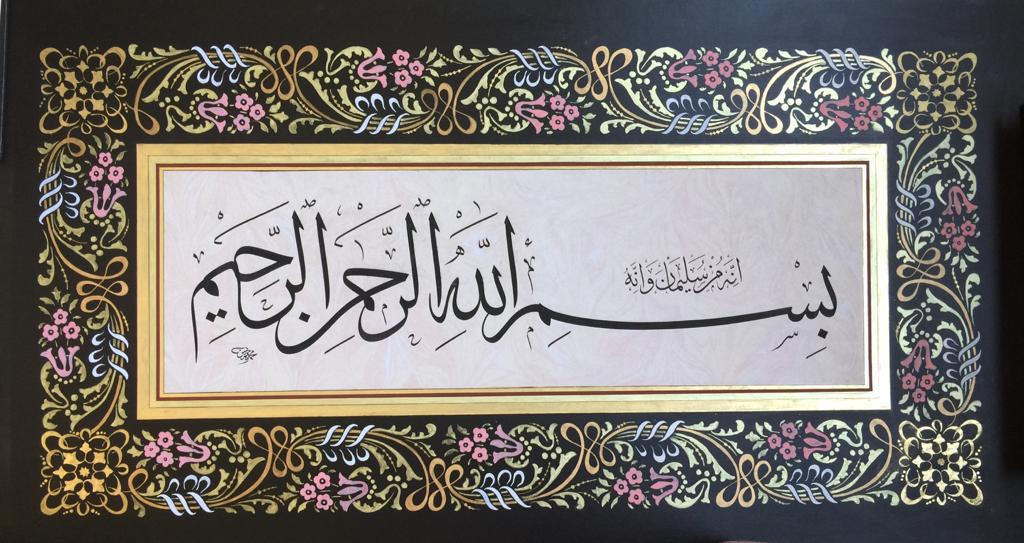 انه من سليمان وانه
بسم الله الرحمن الرحيم